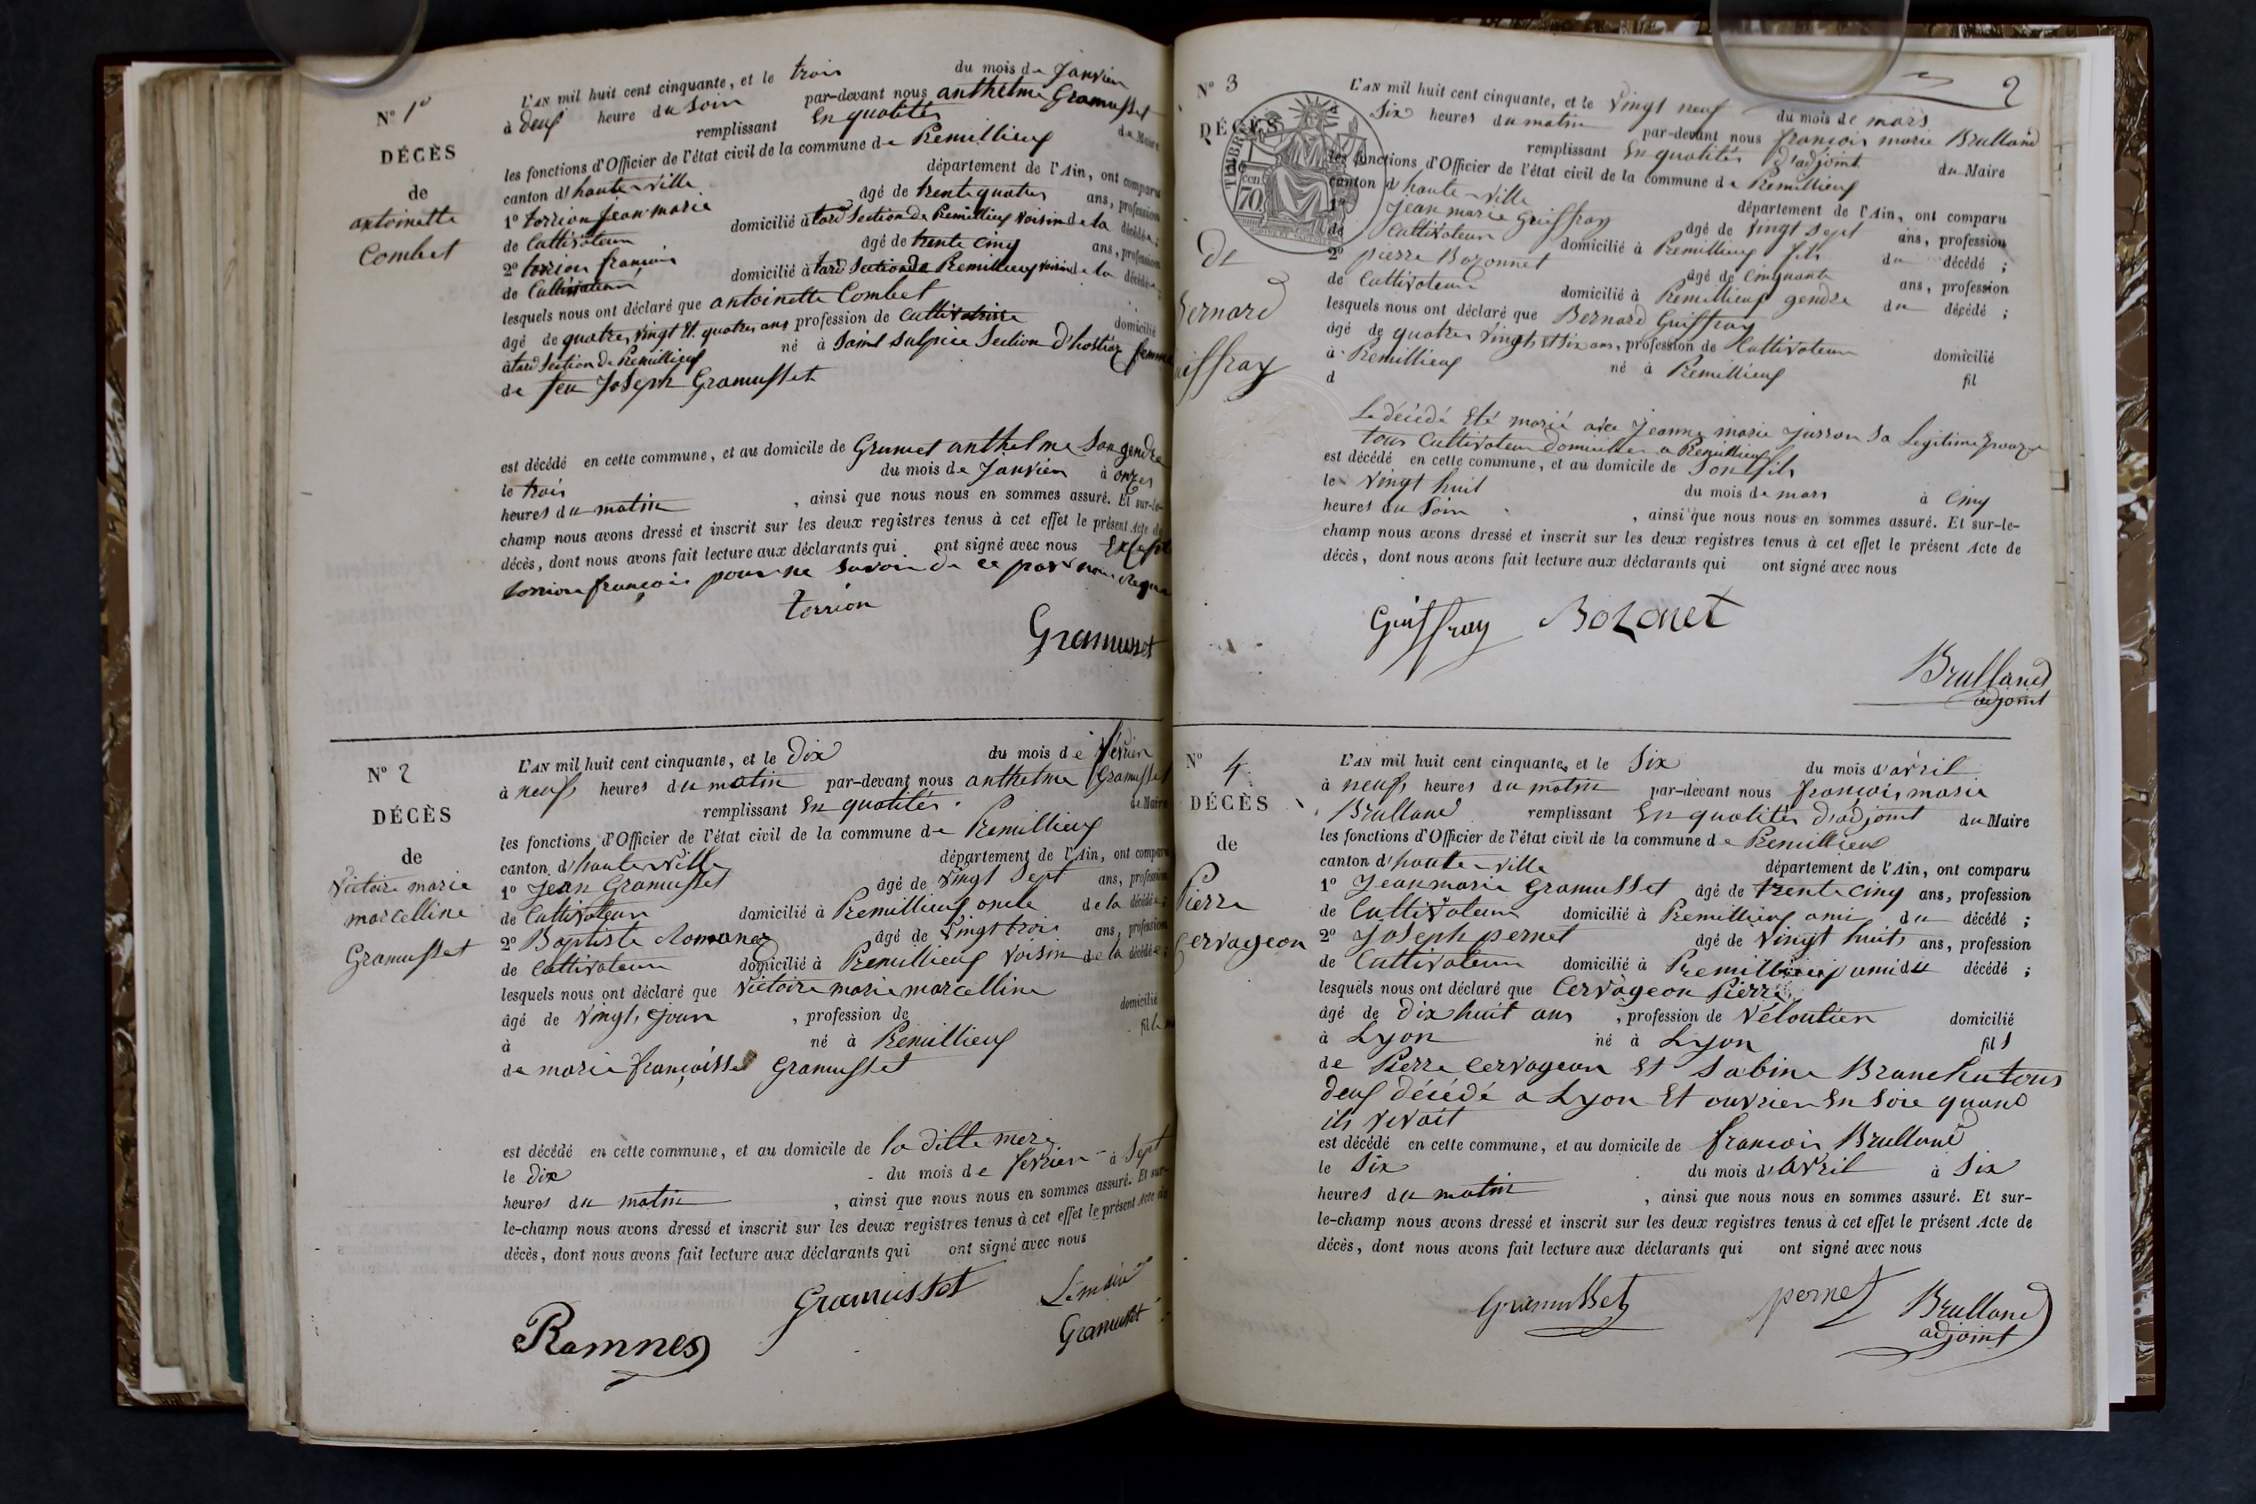 N° 1er
DÉCÈS
de
antoinette
Combet
L'AN mil huit cent cinquante, et le trois du mois de Janvier
à deux heure du soir par-devant nous anthelme Gramusset
remplissant En qualités de Maire
les fonctions d'Officier de l'état civil de la commune de Premillieux
canton d'hauteville département de l'Ain, ont comparu
1° torrion jean marie âgé de trente quatre ans, profession
de Cultivateur domicilié à tard Section de Premillieux voisin de la décédée;
2° torrion françois âgé de trente cinq ans, profession
de Cultivateur domicilié à tard Section de Premillieux voisin de la décédée;
lesquels nous ont déclaré que antoinette Combet
âgé de quatre vingt et quatre ans profession de cultivatrice domicilié
à tard Section de Premillieux né à Saint Sulpice Section d'hostiaz femme
de feu Joseph Gramusset
est décédé en cette commune, et au domicile de Grumet anthelme Son gendre
le trois du mois de Janvier à onzes
heures du matin , ainsi que nous nous en sommes assuré. Et sur-le-
champ nous avons dressé et inscrit sur les deux registres tenus à cet effet le présent Acte de
décès, dont nous avons fait lecture aux déclarants qui ont signé avec nous Excepté
torrion françois pour ne savoir de ce par nous requis
torrion
Gramusset
N° 2
DÉCÈS
de
Victoire marie
marcelline
Gramusset
L'AN mil huit cent cinquante, et le Dix du mois de février
à neufs heures du matin par-devant nous anthelme Gramusset
remplissant En qualités de Maire
les fonctions d'Officier de l'état civil de la commune de Premillieux
canton d'hauteville département de l'Ain, ont comparu
1° Jean Gramusset âgé de vingt Sept ans, profession
de Cultivateur domicilié à Premillieux oncle de la décédée;
2° Baptiste Romanaz âgé de vingt trois ans, profession
de Cultivateur domicilié à Premillieux voisin de la décédée;
lesquels nous ont déclaré que Victoire marie marcelline
âgé de vingts jour , profession de domicilié
à né à Premillieux fille
de marie françoisse Gramusset
est décédé en cette commune, et au domicile de la ditte mere
le Dix du mois de fevrier à Sept
heures du matin , ainsi que nous nous en sommes assuré. Et sur-
le-champ nous avons dressé et inscrit sur les deux registres tenus à cet effet le présent Acte de
décès, dont nous avons fait lecture aux déclarants qui ont signé avec nous
Gramusset Le maire
Gramusset
N° 3
2
DÉCÈS
TIMBRE
cent
70
De
Bernard
Guiffray
L'AN mil huit cent cinquante, et le vingt neuf du mois de mars
à Six heures du matin par-devant nous françois marie Brulland
remplissant En qualités d'adjoint du Maire
les fonctions d'Officier de l'état civil de la commune de Premillieux
canton d'haute-ville département de l'Ain, ont comparu
1° Jean marie Guiffray âgé de vingt Sept ans, profession
de Cultivateur domicilié à Premillieux fils du décédé;
2° pierre Bozonnet âgé de Cinquante ans, profession
de Cultivateur domicilié à Premillieux gendre du décédé;
lesquels nous ont déclaré que Bernard Guiffray
âgé de quatre vingt et Six ans, profession de Cultivateur domicilié
à Premillieux né à Premillieux fil
d
Le décédé Eté marié avec Jeanne marie Jusson sa Legitime Epouze
tous Cultivateur Domicilier a Premillieux
est décédé en cette commune, et au domicile de Son fils
le vingt huit du mois de mars à Cinq
heures du Soir , ainsi que nous nous en sommes assuré. Et sur-le-
champ nous avons dressé et inscrit sur les deux registres tenus à cet effet le présent Acte de
décès, dont nous avons fait lecture aux déclarants qui ont signé avec nous
Guiffray Bozonet
Brulland
adjoint
N° 4
DÉCÈS
de
Pierre
Cervageon
L'AN mil huit cent cinquante, et le Six du mois d'avril
à neufs heures du matin par-devant nous françois marie
Brulland remplissant En qualités d'adjoint du Maire
les fonctions d'Officier de l'état civil de la commune de Premillieux
canton d'haute-ville département de l'Ain, ont comparu
1° Jean marie Gramusset âgé de trente cinq ans, profession
de Cultivateur domicilié à Premillieux ami du décédé;
2° Joseph pernet âgé de vingt huits ans, profession
de Cultivateur domicilié à Premillieux ami du décédé;
lesquels nous ont déclaré que Cervageon Pierre
âgé de Dix huit ans , profession de Véloutier domicilié
à Lyon né à Lyon fils
de Pierre Cervageon Et Sabine Branchu tous
deux décédé a Lyon Et ouvrier En Soie quand
ils vivait
est décédé en cette commune, et au domicile de francois Brulland
le Six du mois d'Avril à Six
heures du matin , ainsi que nous nous en sommes assuré. Et sur-
le-champ nous avons dressé et inscrit sur les deux registres tenus à cet effet le présent Acte de
décès, dont nous avons fait lecture aux déclarants qui ont signé avec nous
Gramusset pernet Brulland
adjoint